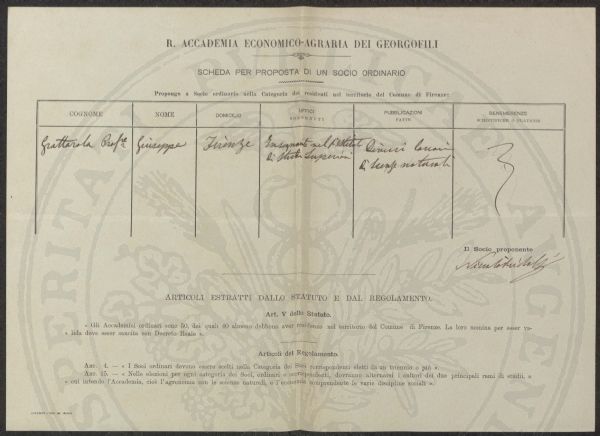 R. ACCADEMIA ECONOMICO-AGRARIA DEI GEORGOFILI
SCHEDA PER PROPOSTA DI UN SOCIO ORDINARIO
Propongo a Socio ordinario nella Categoria dei residenti nel territorio del Comune di Firenze:
COGNOME NOME DOMICILIO UFFICI SOSTENUTI PUBBLICAZIONI FATTE BENEMERENZE SCIENTIFICHE O PRATICHE
Grattarola Prof.re Giuseppe Firenze Insegnante nel R. Istituto Diversi lavori
di Studi Superiori di Scienze naturali
Il Socio proponente
ARTICOLI ESTRATTI DALLO STATUTO E DAL REGOLAMENTO.
Art. V dello Statuto.
« Gli Accademici ordinari sono 50, dei quali 40 almeno debbono aver residenza nel territorio del Comune di Firenze. La loro nomina per esser va-
« lida deve esser sancita con Decreto Reale ».
Articoli del Regolamento.
ART. 4. — « I Soci ordinari devono essere scelti nella Categoria dei Soci corrispondenti eletti da un triennio o più ».
ART. 15. — « Nelle elezioni per ogni categoria dei Soci, ordinari e corrispondenti, dovranno alternarsi i cultori dei due principali rami di studii, a
« cui intende l'Accademia, cioè l'agronomia con le scienze naturali, e l'economia comprendente le varie discipline sociali ».